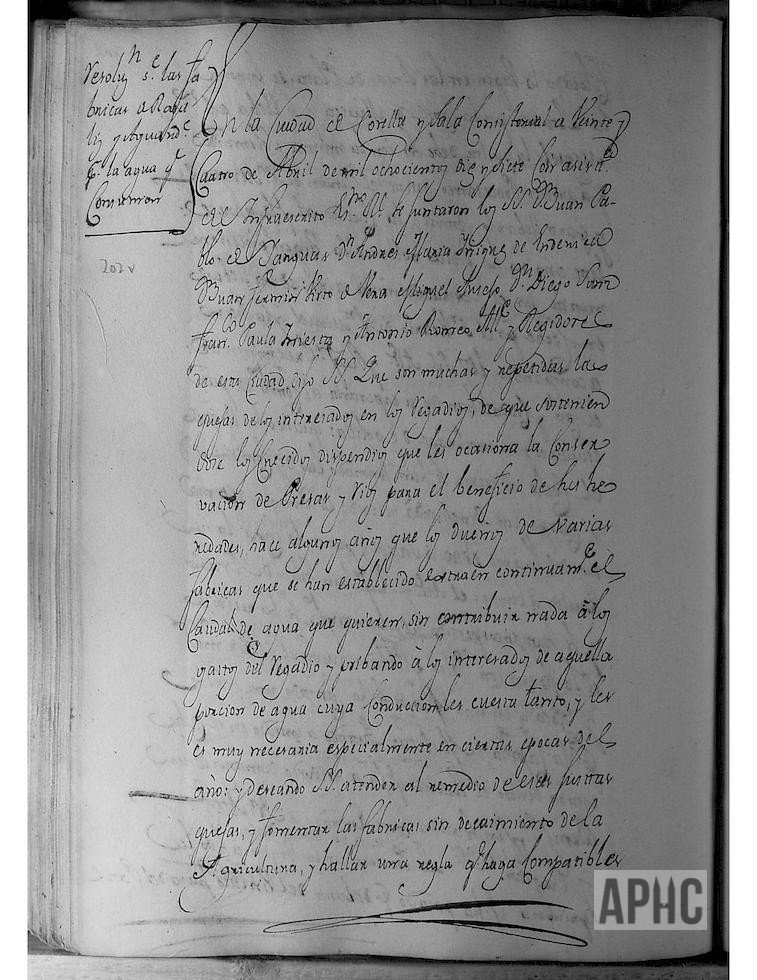 Resoluzn se. las fa
bricas de Rega
liz y Aguardte.
pr. la agua qe.
Consumen
202v
En la Ciudad de Corella y Sala Consistorial a Veinte y
Cuatro de Abril de mil ochocientos diez y siete Con asista.
de el Infraescrito Esno. Rl. se juntaron los SS. Dn Juan Pa-
blo de Sanguas Dn. Andres Maria Iñiguez de
Dn Juan Fermin Virto de Vera Miguel Dn. Diego Sanz
Franco. Paula Iniesta y Antonio Romeo Alce. y Regidores
de esta Ciudad, dijo SS. Que son muchas y repetidas las
quejas de los interesados en los Regadios, de que sosteniendo
los Crecidos dispendios que les ocasiona la Conser
vacion de Presas y Rios para el beneficio de sus he
redades, hace algunos años que los dueños de Varias
fabricas que se han establecido extraen continuamte. el
Caudal de agua que quieren, sin contribuir nada à los
gastos del Regadio y pribando à los interesados de aquella
porcion de agua cuya Conduccion les cuesta tanto, y les
es muy necesaria especialmente en ciertas epocas del
año: y deseando SS. atender al remedio de estas justas
quejas, y fomentar las fabricas sin decaimiento de la
Agricultura, y hallar una regla qe. haga Compatibles
APHC